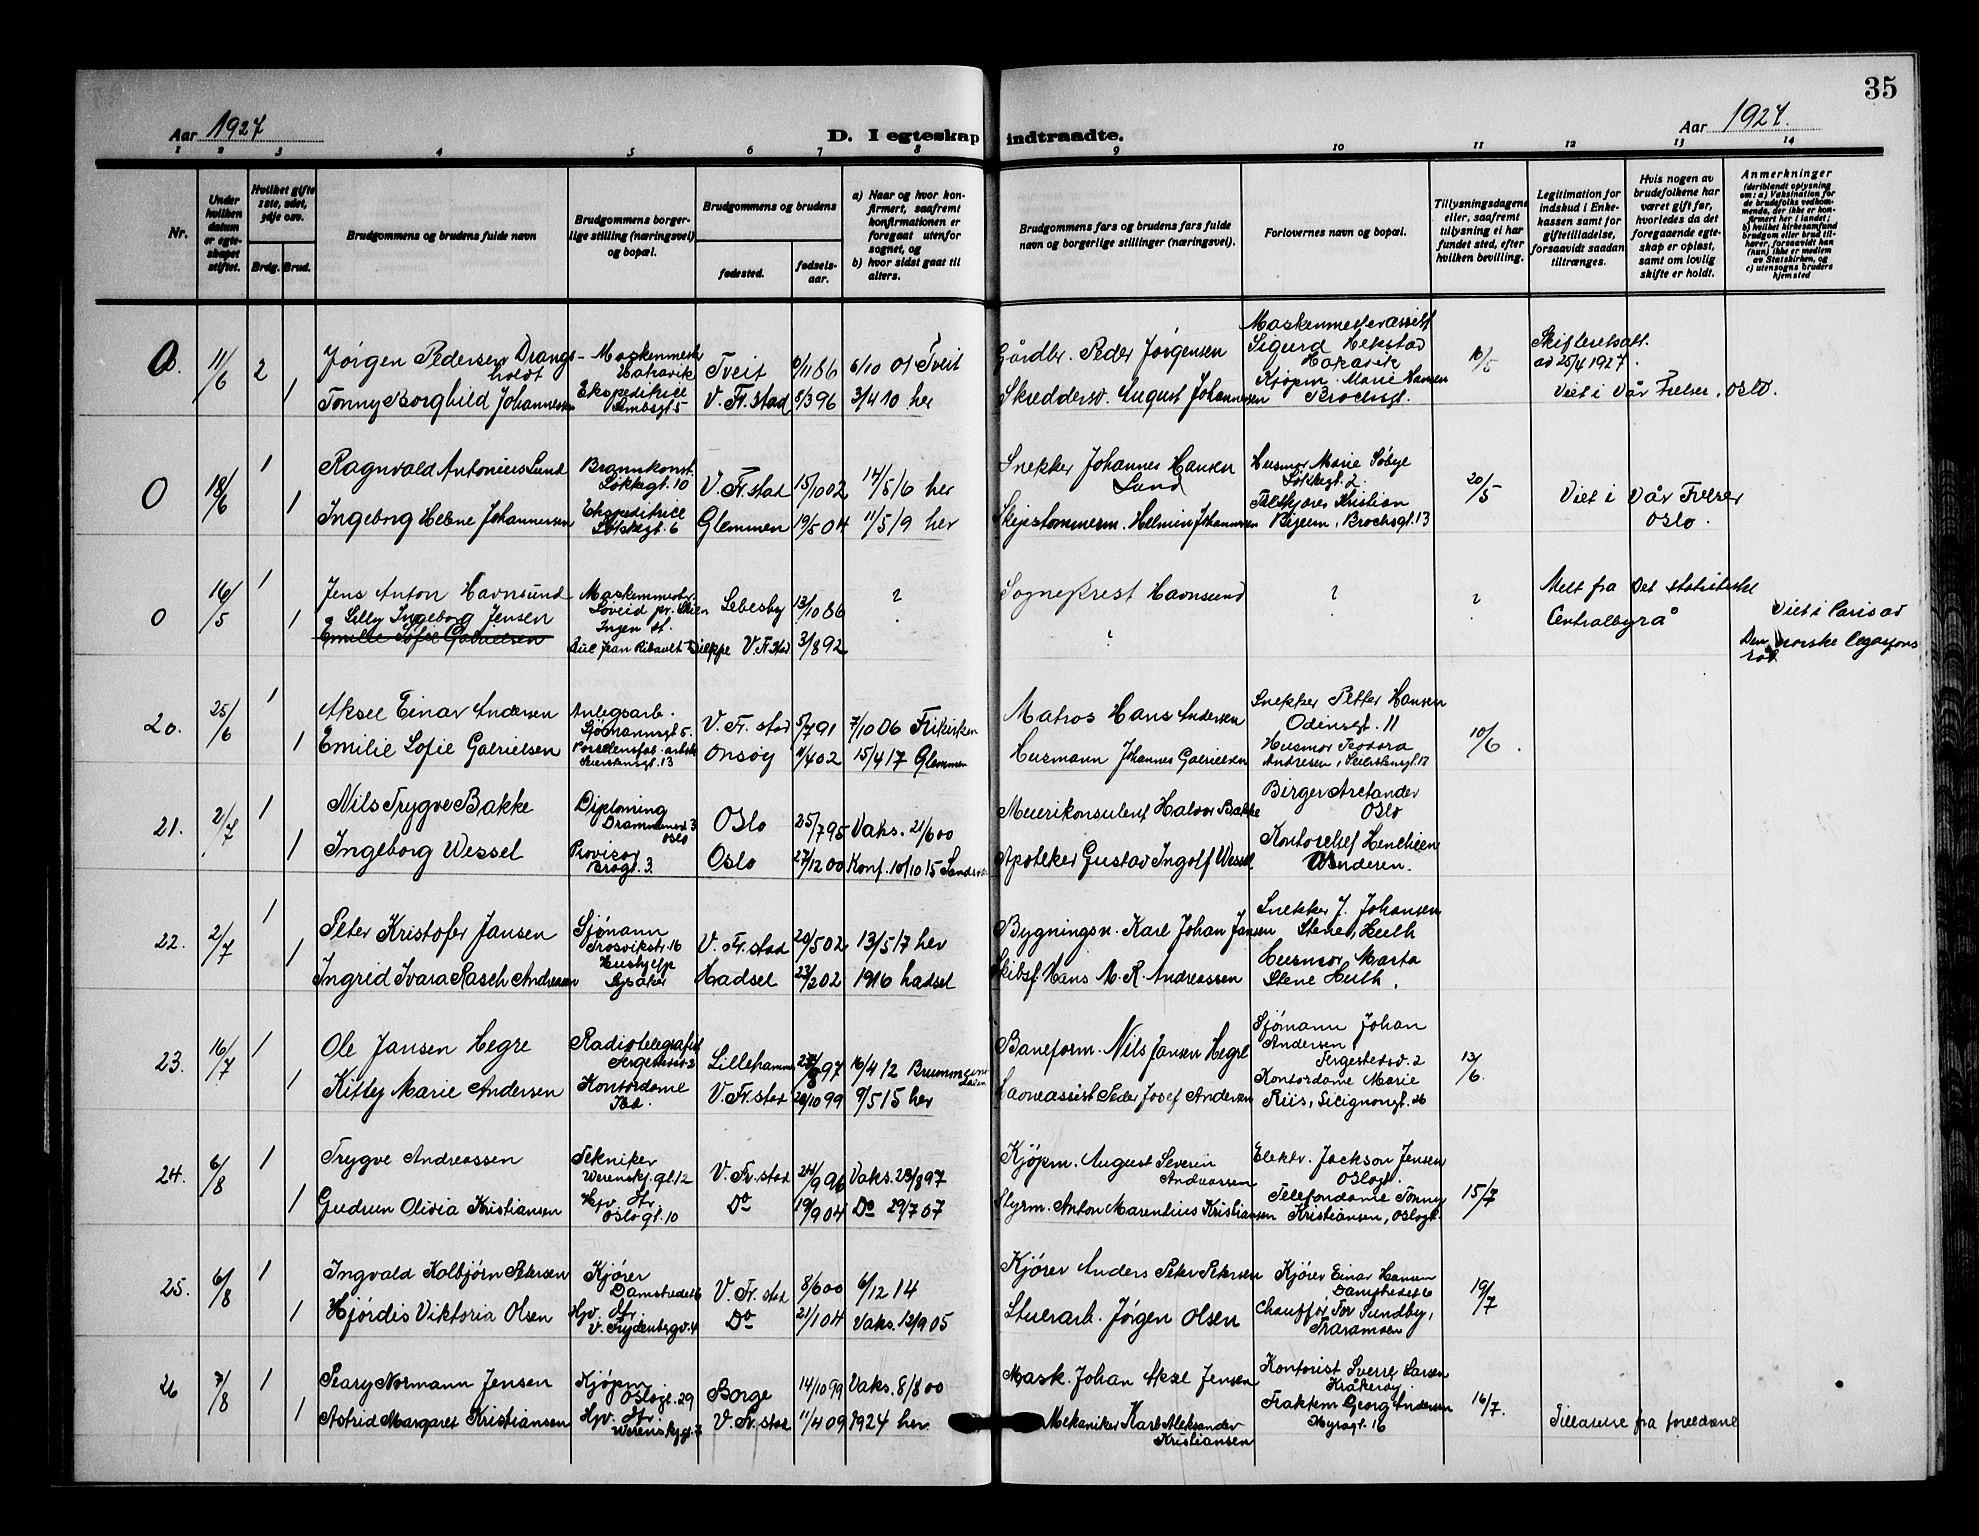 35
Aar 1927
D. I egteskap indtraadte.
Aar 1927.
1 2 3 4 5 6 7 8 9 10 11 12 13 14
Nr.
Under hvilken datum er egteskapet stiftet.
Hvilket gifte 1ste, 2det, 3dje osv.
Brdg. Brud.
Brudgommens og brudens fulde navn
Brudgommens borgerlige stilling (næringsvei) og bopæl.
Brudgommens og brudens
fødested.
fødselsaar.
a) Naar og hvor konfirmert, saafremt konfirmationen er foregaat utenfor sognet, og
b) hvor sidst gaat til alters.
Brudgommens fars og brudens fars fulde navn og borgerlige stillinger (næringsvei).
Forlovernes navn og bopæl.
Tillysningsdagens eller, saafremt tillysning ei har fundet sted, efter hvilken bevilling.
Legitimation for indskud i Enkekassen samt for giftetilladelse, forsaavidt saadan tiltrænges.
Hvis nogen av brudefolkene har været gift før, hvorledes da det foregaaende egteskap er opløst, samt om lovlig skifte er holdt.
Anmerkninger
(deriblandt oplysning om: a) Vaksination for de brudefolks vedkommende, der ikke er konfirmert her i landet; b) hvilket kirkesamfund brudgom eller brud tilhører, forsaavidt han (hun) ikke er medlem av Statskirken, og c) utensogns bruders hjemsted
0. 11/6 2 Jørgen Pedersen Drangsholdt Maskenmestr Hakavik Tveit 9/11 86 6/10 01 Tveit Gårdbr. Peder Jørgensen Maskenmesterassist Sigurd Hekstad Hakavik 16/5 Skifteretsatt. av 25/4 1927.
1 Tonny Borghild Johannessen Ekspeditrice V. Fr.stad 8/3 96 3/4 10 her Skreddersv. August Johannessen Kjøpm. Marie Hansen Brochsgt. Viet i Vår Frelser, Oslo.
0 18/6 1 Ragnvald Antonius Lund Brannkonst. Løkkegt. 10 V. Fr.stad 15/10 02 14/5 16 her Snekker Johannes Hansen Lund Husmor Marie Søbye Løkkegt. 2. 20/5 Viet i Vår Frelser Oslo.
1 Ingeborg Helene Johannessen Ekspeditrice Løkkegt. 6 Glemmen 19/5 04 11/5 19 her Skipstømmerm. Helmin Johannessen Kristian Bjerum, Brochsgt. 13
0 16/5 1 Jens Anton Havnsund Maskenmestr. Soveid pr. Skien Lebesby 13/10 86 ? Sogneprest Havnsund ? ? Melt fra Det statistiske Centralbyrå Viet i Paris av Den norske legasjonsråd
1 og Lilly Ingeborg Jensen Emilie Sofie Gabrielsen Rue Jean Ribault Dieppe V. Fr.stad 3/8 92
20. 25/6 1 Aksel Einar Andersen Anlegsarb. Sjømannsgt. 5 V. Fr.stad 5/7 91 7/10 06 Frikirken Matros Hans Andersen Snekker Petter Hansen Odinsgt. 11 10/6.
1 Emilie Sofie Gabrielsen Porselensfab.arbeid. Seierstensgt. 13 Onsøy 11/4 02 15/4 17 Glemmen Husmann Johannes Gabrielsen Husmor Teodora Andresen, Seierstensgt. 13
21. 2/7 1 Nils Trygve Bakke Dipl.ing Drammensv. 3 Oslo Oslo 25/7 95 Vaks. 21/6 00 Meierikonsulent Halvor Bakke Birger Arctander Oslo
1 Ingeborg Wessel Provisor Brogt. 3. Oslo 27/12 00 Konf. 10/10 15 Apoteker Gustav Ingolf Wessel Kontorchef Henrichsen Vinderen.
22. 2/7 1 Peter Kristofer Jansen Sjømann Trosvikstr. 16 V. Fr.stad 20/5 02 13/5 17 her Bygningsn. Karl Johan Jansen Snekker J. Johansen Stene, Huth
1 Ingrid Ivara Rasch Andreassen Hushjelp Lysaker Hadsel 23/2 02 1916 hadsel Skibsf. Hans M. R. Andreassen Husmor Marta Stene Huth.
23. 16/7 1 Ole Jansen Hegre Radiotelegrafist Lillehammer 97 16/4 12 Baneform. Nils Jansen Hegre Sjømann Johan Andersen Fergestedsv. 2 13/6
1 Kitley Marie Andersen Kontordame V. Fr.stad 28/10 99 9/5 15 her Peder Josef Andersen Kontordame Marie Riis,
24. 6/8 1 Trygve Andreassen Tekniker Werenskj.gt. 12 V. Fr.stad 24/9 96 Vaks. 23/8 97 Kjøpm. August Severin Andreassen Elektr. Jackson Jensen Oslogt. 15/7
1 Gudrun Olivia Kristiansen Hjv. dtr Oslogt. 10 Do 19/9 04 Do 29/7 07 Styrm. Anton Marentius Kristiansen Telefondame Tonny Kristiansen, Oslogt.
25. 6/8 1 Ingvald Kolbjørn Petersen Kjører Damstredet 6 V. Fr.stad 8/6 00 6/12 14 Kjører Anders Peter Petersen Kjører Einar Hansen Damstredet 6 19/7
1 Hjørdis Viktoria Olsen Hjv. dtr. V. Frydenbergv. 4 Do 21/1 04 Vaks. 12/9 05 Stuerarb. Jørgen Olsen Chauffør Tor Sundby, Traramsen
26 7/8 1 Peary Normann Jensen Kjøpm. Oslogt. 29 Borge 14/10 99 Vaks. 8/8 00 Mask. Johan Aksel Jensen Kontorist Sverre Larsen Kråkerøy 16/7.
1 Astrid Margaret Kristiansen Hjv. dtr. Werenskjgt. 7 V. Fr.stad 11/4 09 1924 her. Mekaniker Karl Aleksander Kristiansen Traktem Georg Andersen Hyragt. 16 Tillatelse fra foreldrene